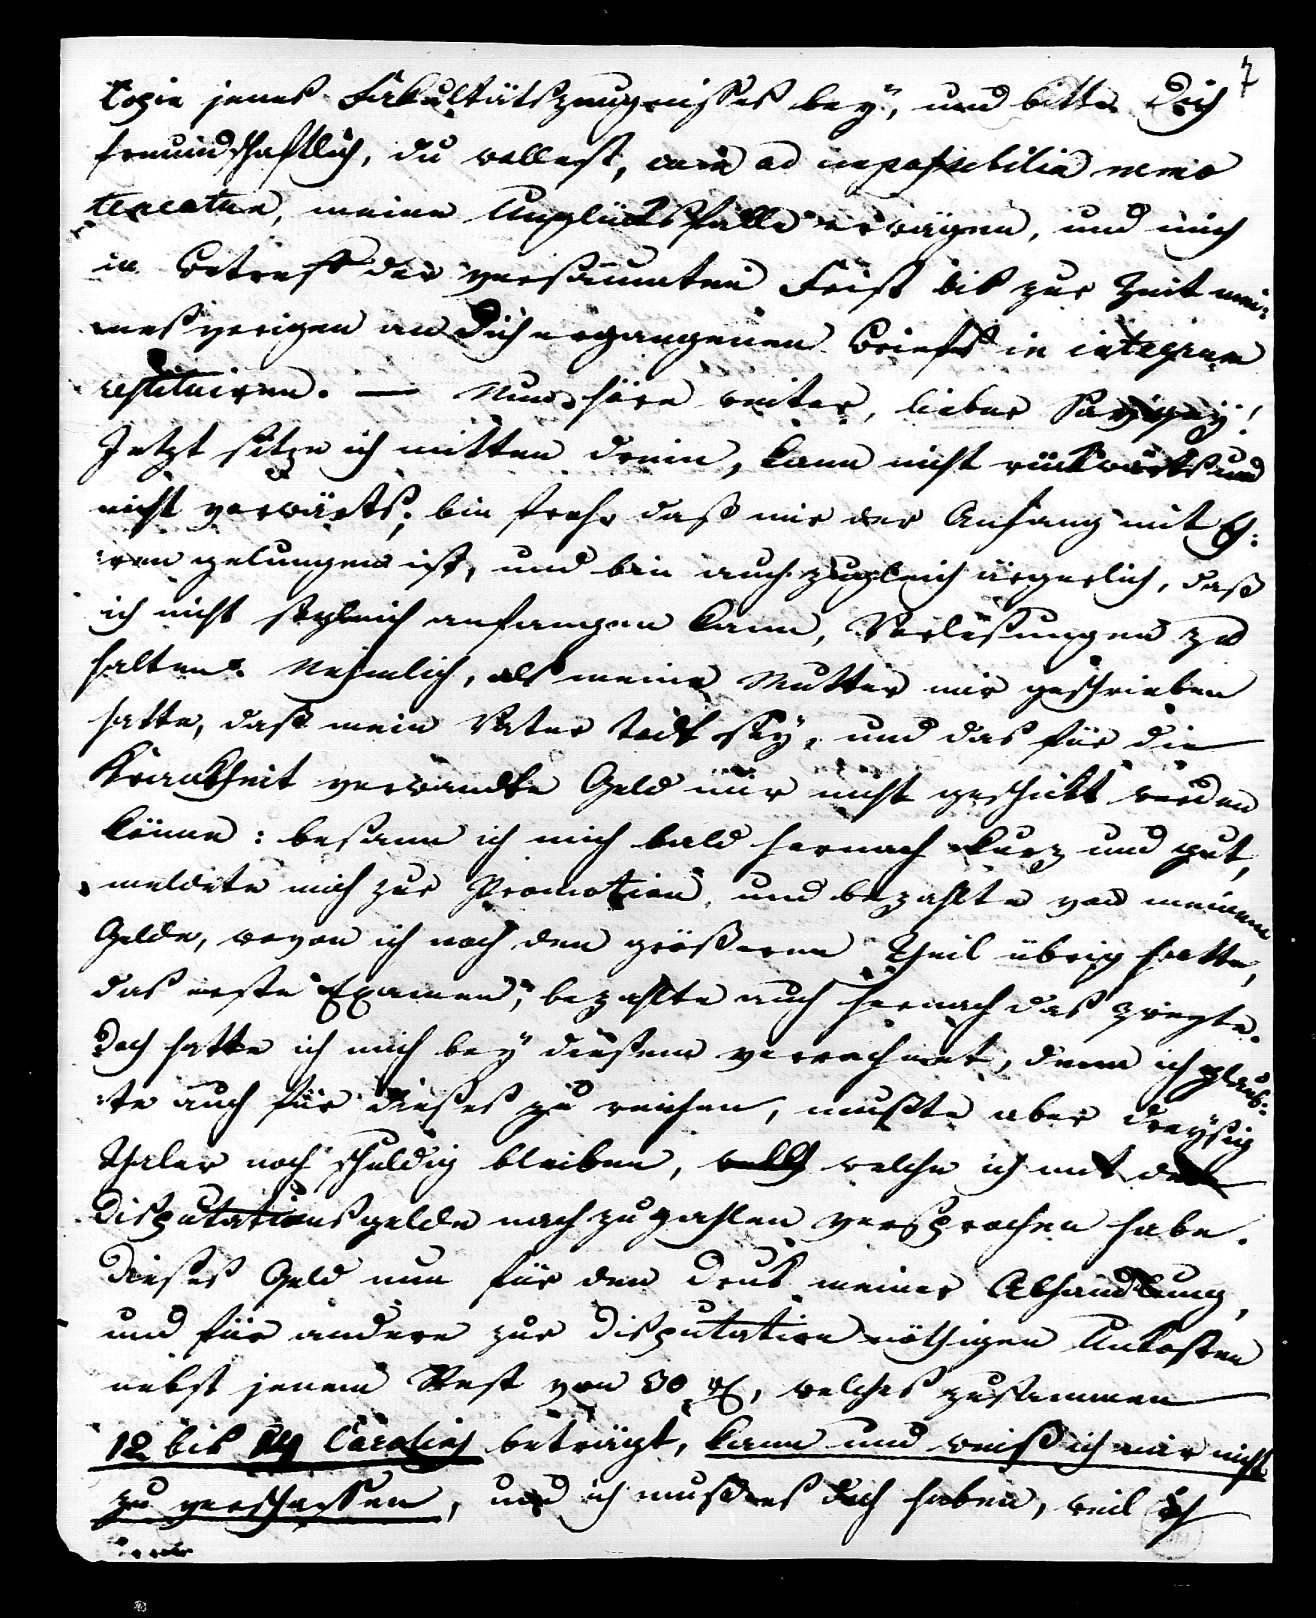 7
Copie jenes Fakultätszeugnisses bey, und bitte Dich
freundschaftlich, du wollest, cum ad impossibilia nemo
teneatur, meine Unglücksfälle erwägen, und mich
in Betreff der versäumten Frist bis zur Zeit mei-
nes vorigen an Dich ergangenen Briefes in integrum
restituiren. — Nun höre weiter, lieber Savigny!
Jetzt sitze ich mitten drinn, kann nicht rückwärts und
nicht vorwärts; bin froh, daß mir der Anfang mit Eh-
ren gelungen ist, und bin auch zugleich ärgerlich, daß
ich nicht sogleich anfangen kann, Vorlesungen zu
halten. Nehmlich, als meine Mutter mir geschrieben
hatte, daß mein Vater todt sey, und das für die
Krankheit verwandte Geld mir nicht geschickt werden
könne: besann ich mich bald hernach kurz und gut,
meldete mich zur Promotion, und bezahlte von meinem
Gelde, wovon ich noch den größeren Theil übrig hatte,
das erste Examen, bezahlte auch hernach das zweyte.
Doch hatte ich mich bey diesem verrechnet, denn ich glaub-
te auch für dieses zu reichen, mußte aber dreysig
Thaler noch schuldig bleiben, welche ich mit dem
Disputationsgelde nachzuzahlen versprochen habe.
Dieses Geld nun für den Druk meiner Abhandlung,
und für andere zur Disputation nöthigen Unkosten
nebst jenem Rest von 30 rth, welches zusammen
12 bis 14 Carolin beträgt, kann und weiß ich mir nicht
zu verschaffen, und ich muß es doch haben, weil ich